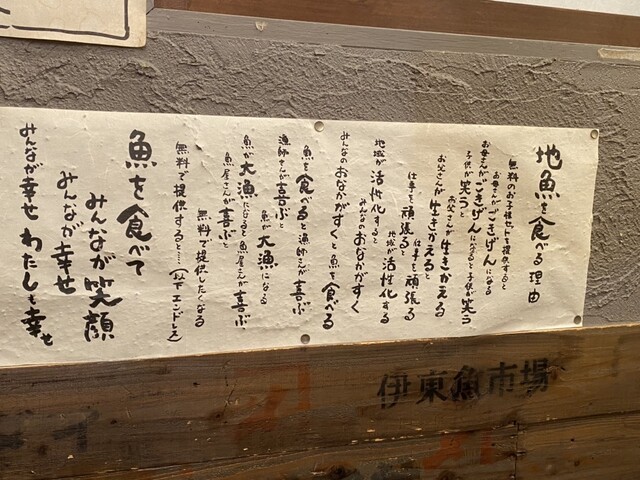 地魚を食べる理由
無料のお子様セットを提供すると
お母さんがごきげんになる
お母さんがごきげんになると子供が笑う
子供が笑うと
お父さんが生きかえる
お父さんが生きかえると
仕事を頑張る
仕事を頑張ると
地域が活性化する
地域が活性化すると
みんなのおなかがすく
みんなのおなかがすくと魚を食べる
魚を食べると漁師さんが喜ぶ
漁師さんが喜ぶと
魚が大漁になる
魚が大漁になると魚屋さんが喜ぶ
魚屋さんが喜ぶと
無料で提供したくなる
無料で提供すると…(以下エンドレス)
魚を食べて
みんなが笑顔
みんなが幸せ
みんなが幸せ わたしも幸せ
伊東魚市場